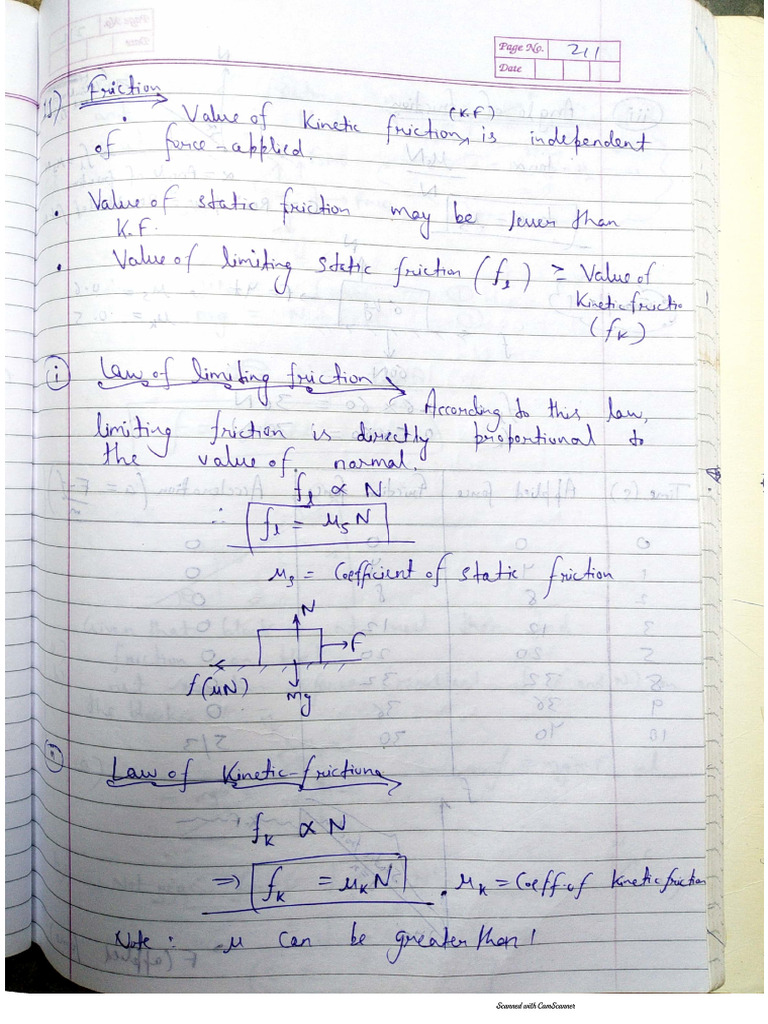 Page No. 211
Date
Friction
(K.F)
. Value of Kinetic friction, is independent
of force-applied.
. Value of static friction may be lesser than
K.F.
. Value of limiting static friction (fl) ≥ Value of
Kinetic frictio
(fK)
(i) Law of limiting friction
According to this law,
limiting friction is directly proportional to
the value of normal.
fl ∝ N
∴ fl = μsN
μs = Coefficient of static friction
N
F
f(μN)
Mg
(ii) Law of Kinetic-friction
fK ∝ N
⇒ fK = μKN . μK = Coeff. of Kinetic friction
Note : μ can be greater than 1
Scanned with CamScanner